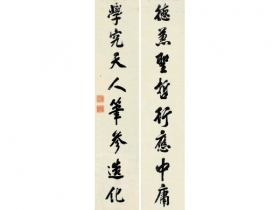 德兼聖哲行應中庸
學究天人筆參造化